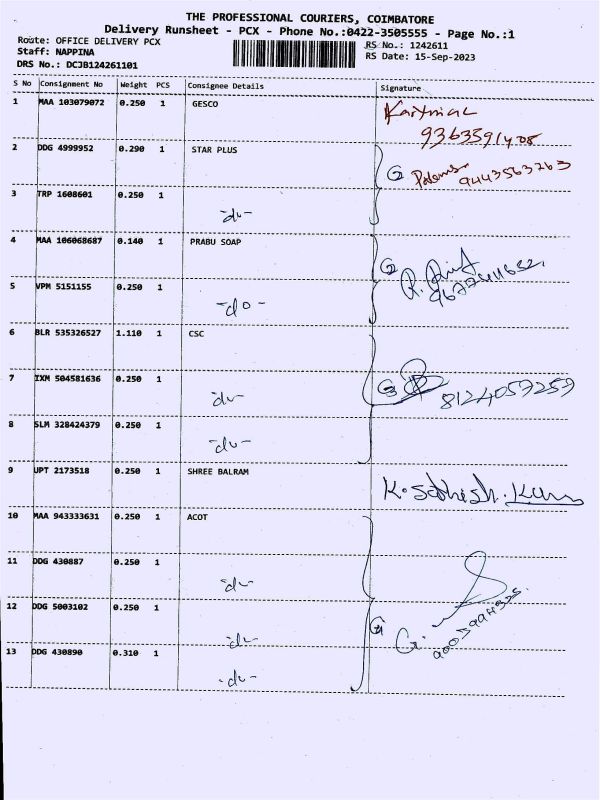 THE PROFESSIONAL COURIERS, COIMBATORE
Delivery Runsheet - PCX - Phone No.:0422-3505555 - Page No.:1
Route: OFFICE DELIVERY PCX
RS No.: 1242611
Staff: NAPPINA
RS Date: 15-Sep-2023
DRS No.: DCJB124261101
S No Consignment No Weight PCS Consignee Details Signature
1 MAA 103079072 0.250 1 GESCO
2 DDG 4999952 0.290 1 STAR PLUS
② 9443563763
3 TRP 1608601 0.250 1 -do-
4 MAA 106068687 0.140 1 PRABU SOAP
②
5 VPM 5151155 0.250 1 -do-
6 BLR 535326527 1.110 1 CSC
7 IXM 504581636 0.250 1 -do-
③ 8124057259
8 SLM 328424379 0.250 1 -do-
9 UPT 2173518 0.250 1 SHREE BALRAM
K. Sathish. Kum
10 MAA 943333631 0.250 1 ACOT
11 DDG 430887 0.250 1 -do-
12 DDG 5003102 0.250 1 -do-
④ G.
13 DDG 430890 0.310 1 -do-